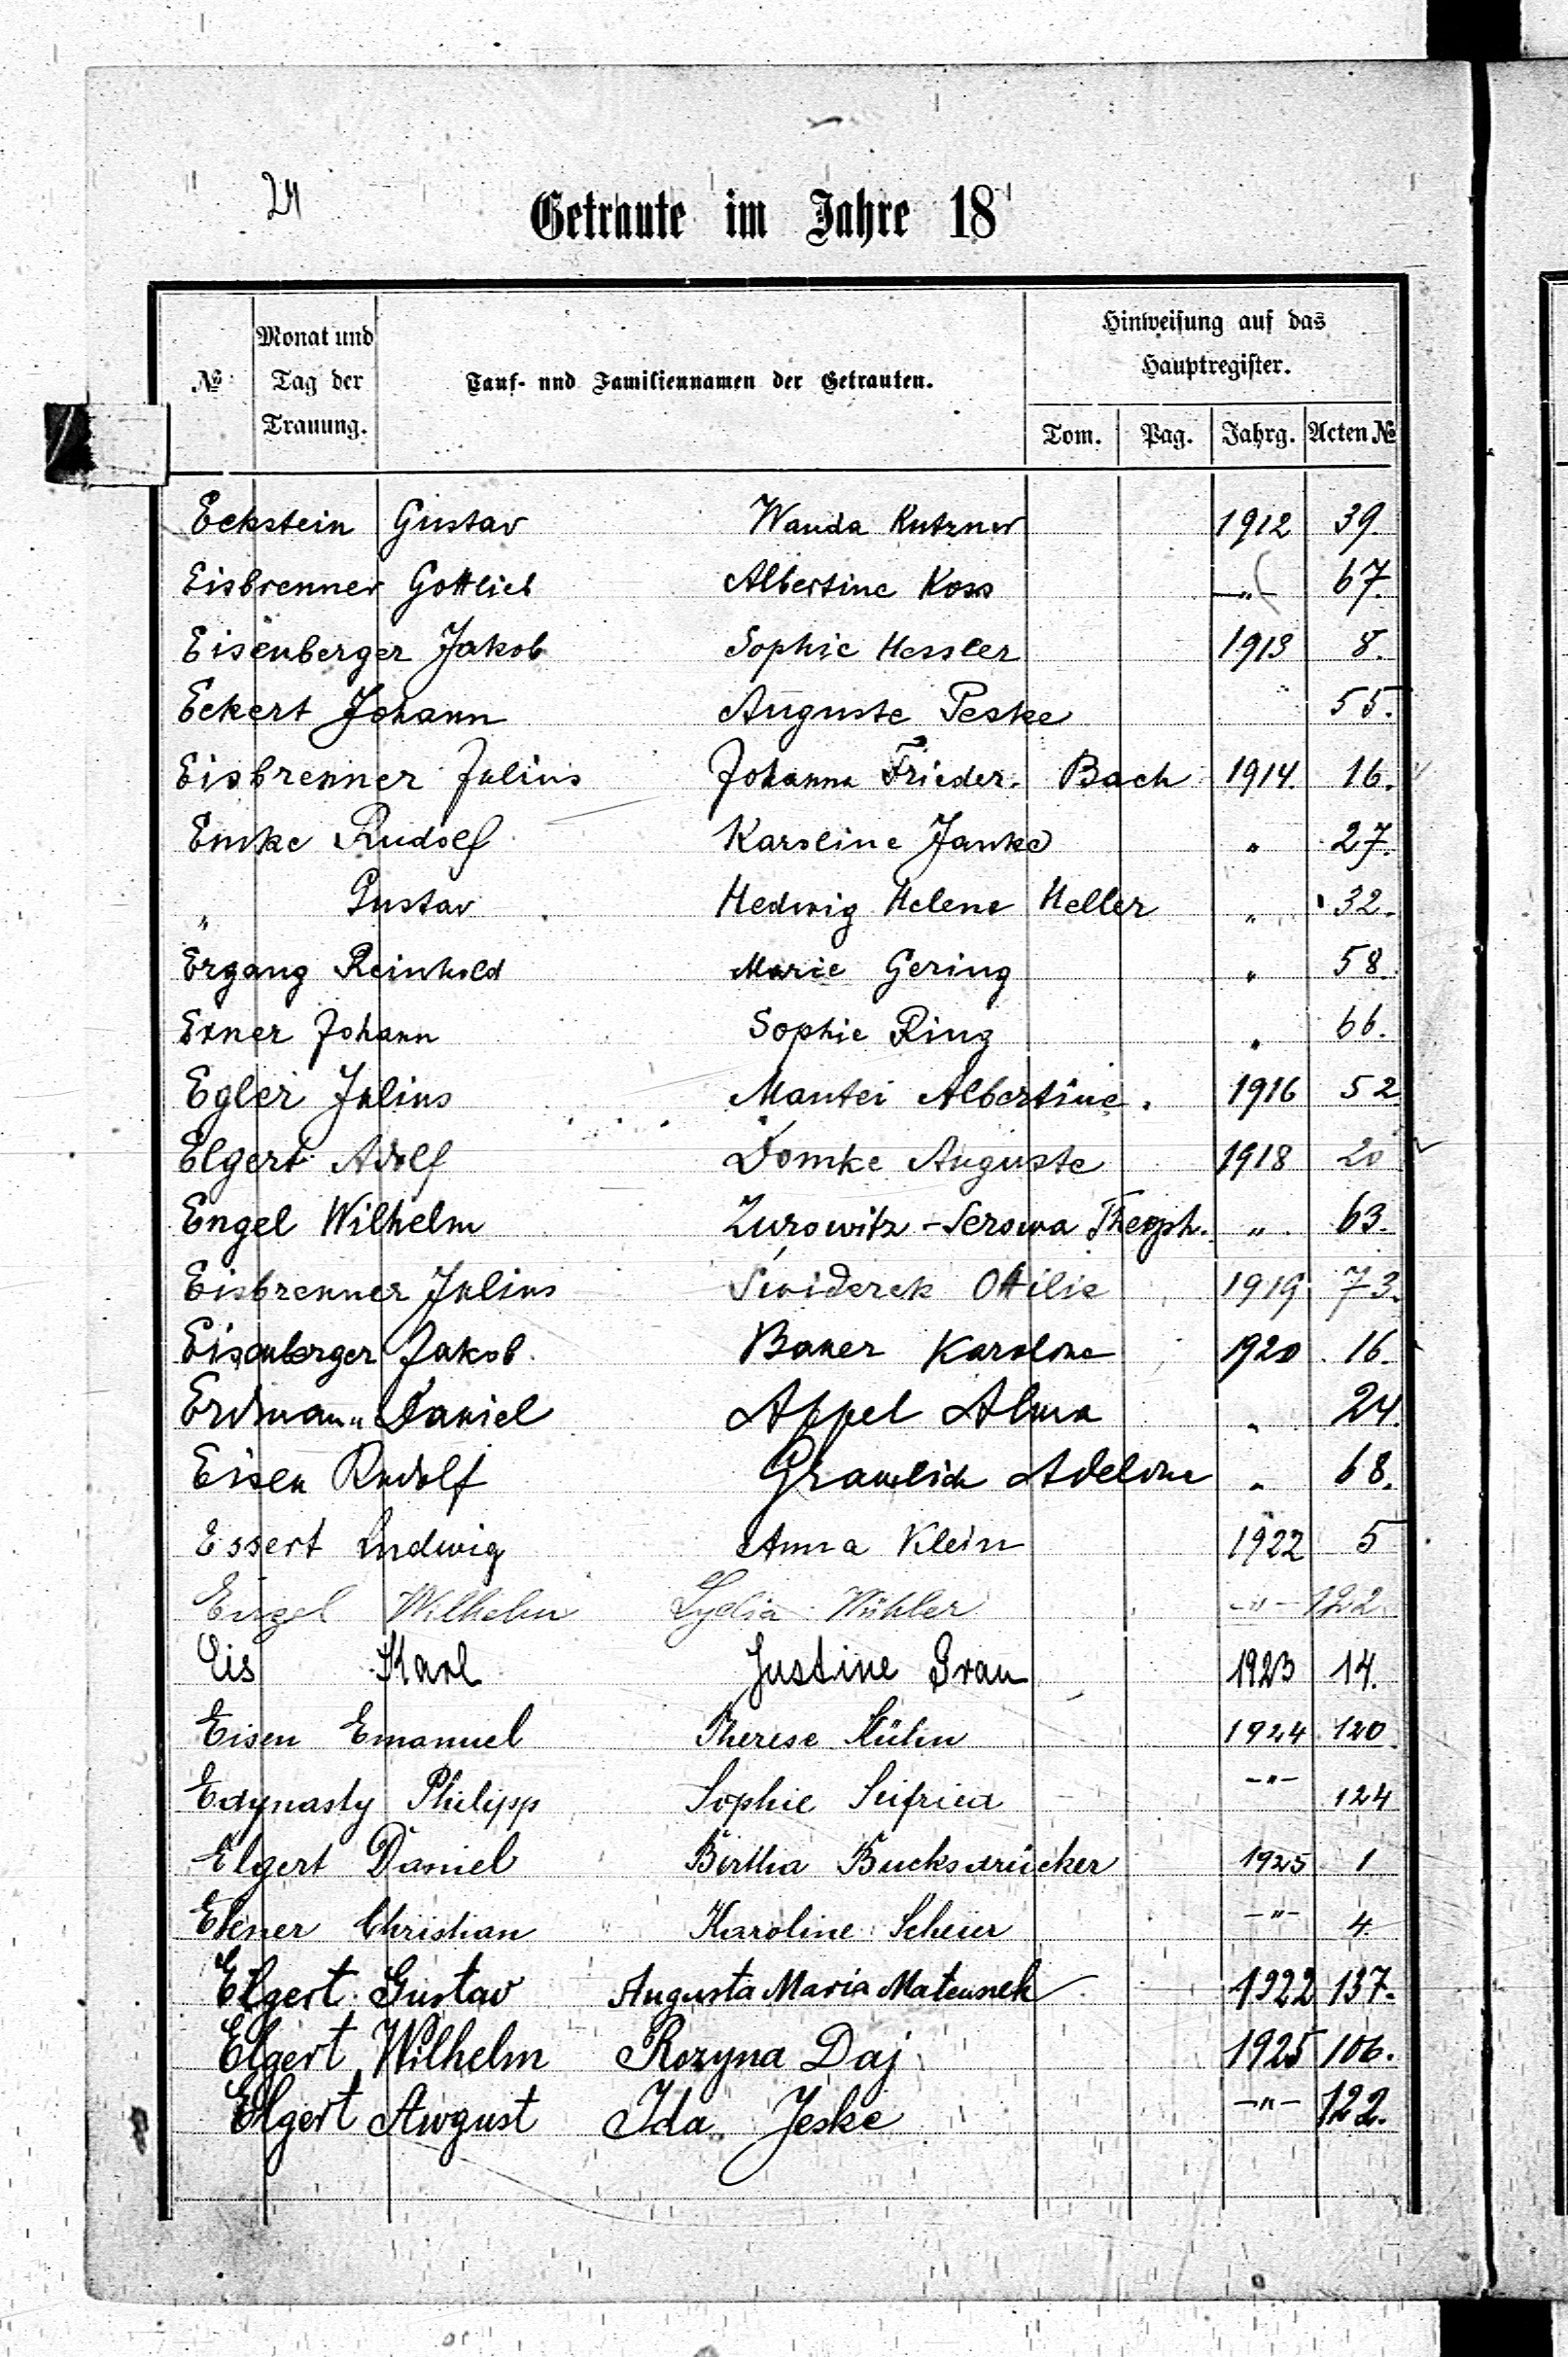 24
Getraute im Jahre 18
№ Monat und Tag der Trauung. Tauf- und Familiennamen der Getrauten. Hinweisung auf das Hauptregister.
Tom. Pag. Jahrg. Acten №
Eckstein Gustav Wanda Kutzner 1912 39.
Eisbrenner Gottlieb Albertine Koss —„— 67.
Eisenberger Jakob Sophie Hessler 1913 8.
Eckert Johann Auguste Peske „ 55.
Eisbrenner Julius Johanna Frieder. Bach 1914. 16.
Emke Rudolf Karoline Janke „ 27.
„ Gustav Hedwig Helene Heller „ 32.
Ergang Reinhold Marie Gering „ 58.
Exner Johann Sophie Ring „ 66.
Egler Julius Mantei Albertine. 1916 52
Elgert Adolf Domke Auguste 1918 20
Engel Wilhelm Zurowitz-Serowa Theoph. „ 63.
Eisbrenner Julius Swiderek Ottilie 1919 73.
Eisenberger Jakob. Bauer Karoline 1920 16.
Erdmann Daniel Appel Alma „ 24.
Eisen Rudolf Gramlich Adeline „ 68.
Essert Ludwig Anna Klein 1922 5
Engel Wilhelm Lydia Wühler —„— 122
Eis Karl Justine Grau 1923 14.
Eisen Emanuel Therese Kühn 1924 120
Edynasty Philipp Sophie Seifried —„— 124
Elgert Daniel Bertha Bucksdrücker 1925 1
Ebner Christian Karoline Scheier —„— 4.
Elgert Gustav Augusta Maria Mateusek 1922 137.
Elgert Wilhelm Rozyna Daj 1925 106.
Elgert August Ida Jeske —„— 122.